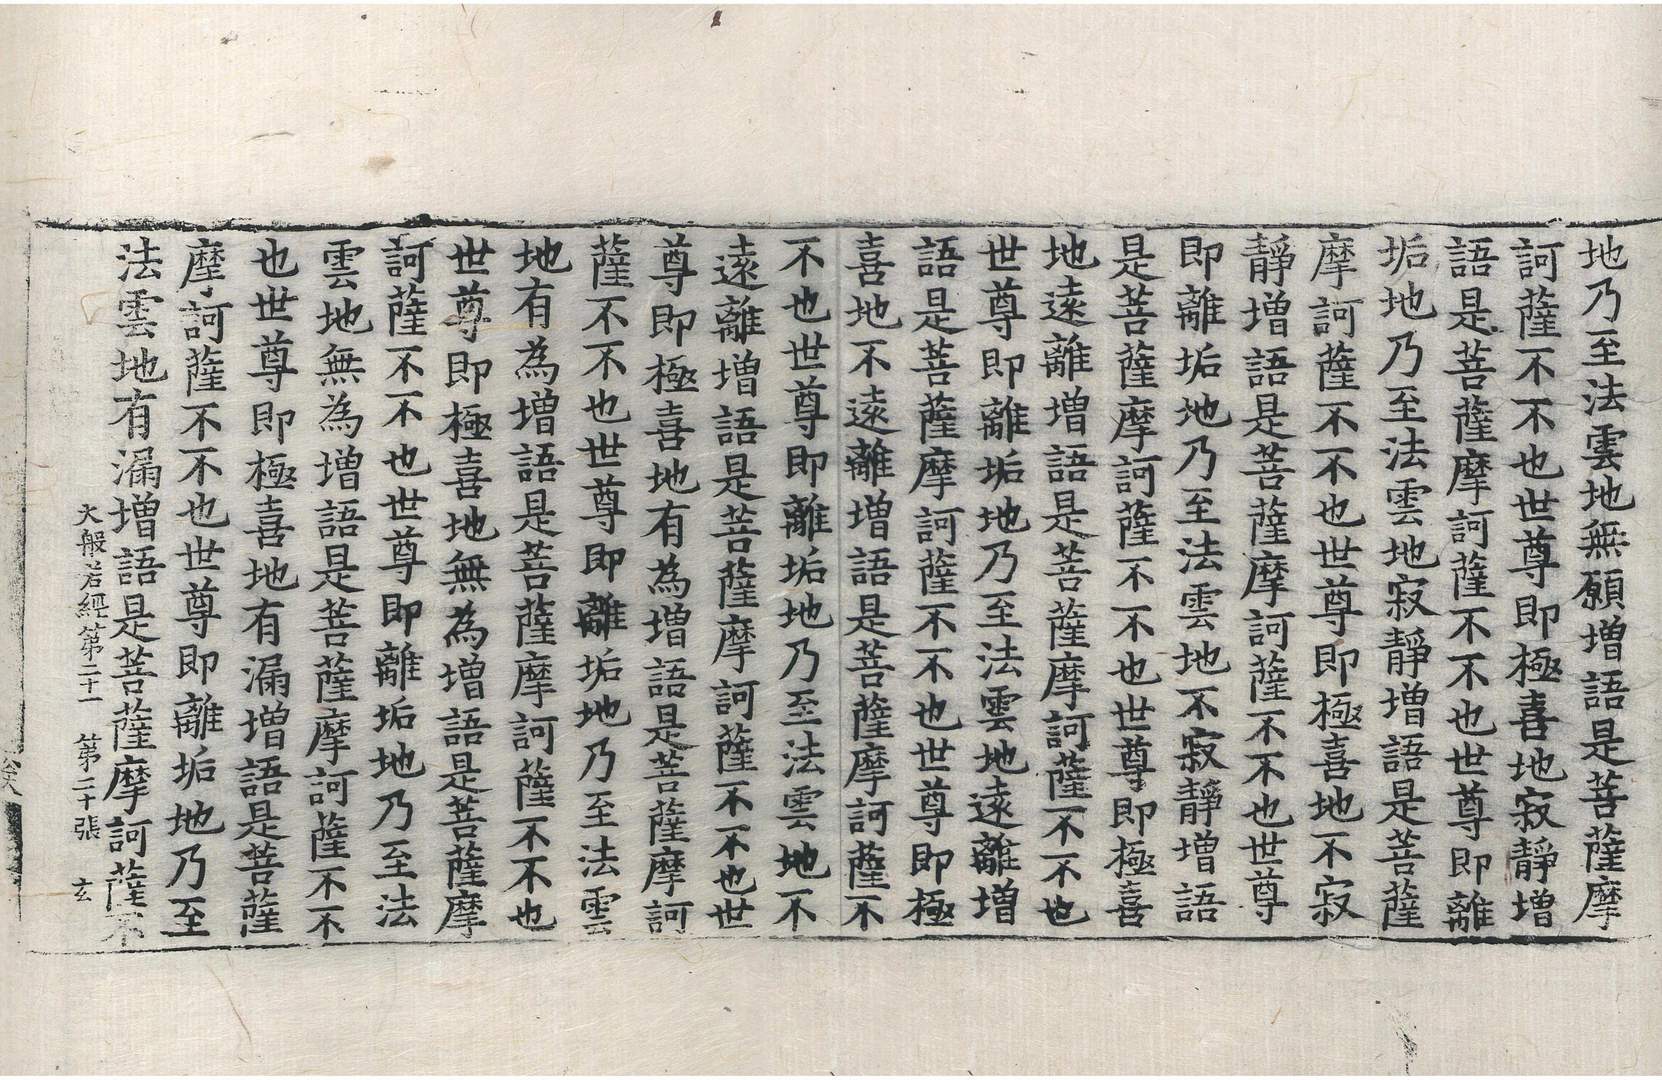 地乃至法雲地無願增語是菩薩摩
訶薩不不也世尊即極喜地寂靜增
語是菩薩摩訶薩不不也世尊即離
垢地乃至法雲地寂靜增語是菩薩
摩訶薩不不也世尊即極喜地不寂
靜增語是菩薩摩訶薩不不也世尊
即離垢地乃至法雲地不寂靜增語
是菩薩摩訶薩不不也世尊即極喜
地遠離增語是菩薩摩訶薩不不也
世尊即離垢地乃至法雲地遠離增
語是菩薩摩訶薩不不也世尊即極
喜地不遠離增語是菩薩摩訶薩不
不也世尊即離垢地乃至法雲地不
遠離增語是菩薩摩訶薩不不也世
尊即極喜地有為增語是菩薩摩訶
薩不不也世尊即離垢地乃至法雲
地有為增語是菩薩摩訶薩不不也
世尊即極喜地無為增語是菩薩摩
訶薩不不也世尊即離垢地乃至法
雲地無為增語是菩薩摩訶薩不不
也世尊即極喜地有漏增語是菩薩
摩訶薩不不也世尊即離垢地乃至
法雲地有漏增語是菩薩摩訶薩不
大般若經第二十一 第二十張 玄